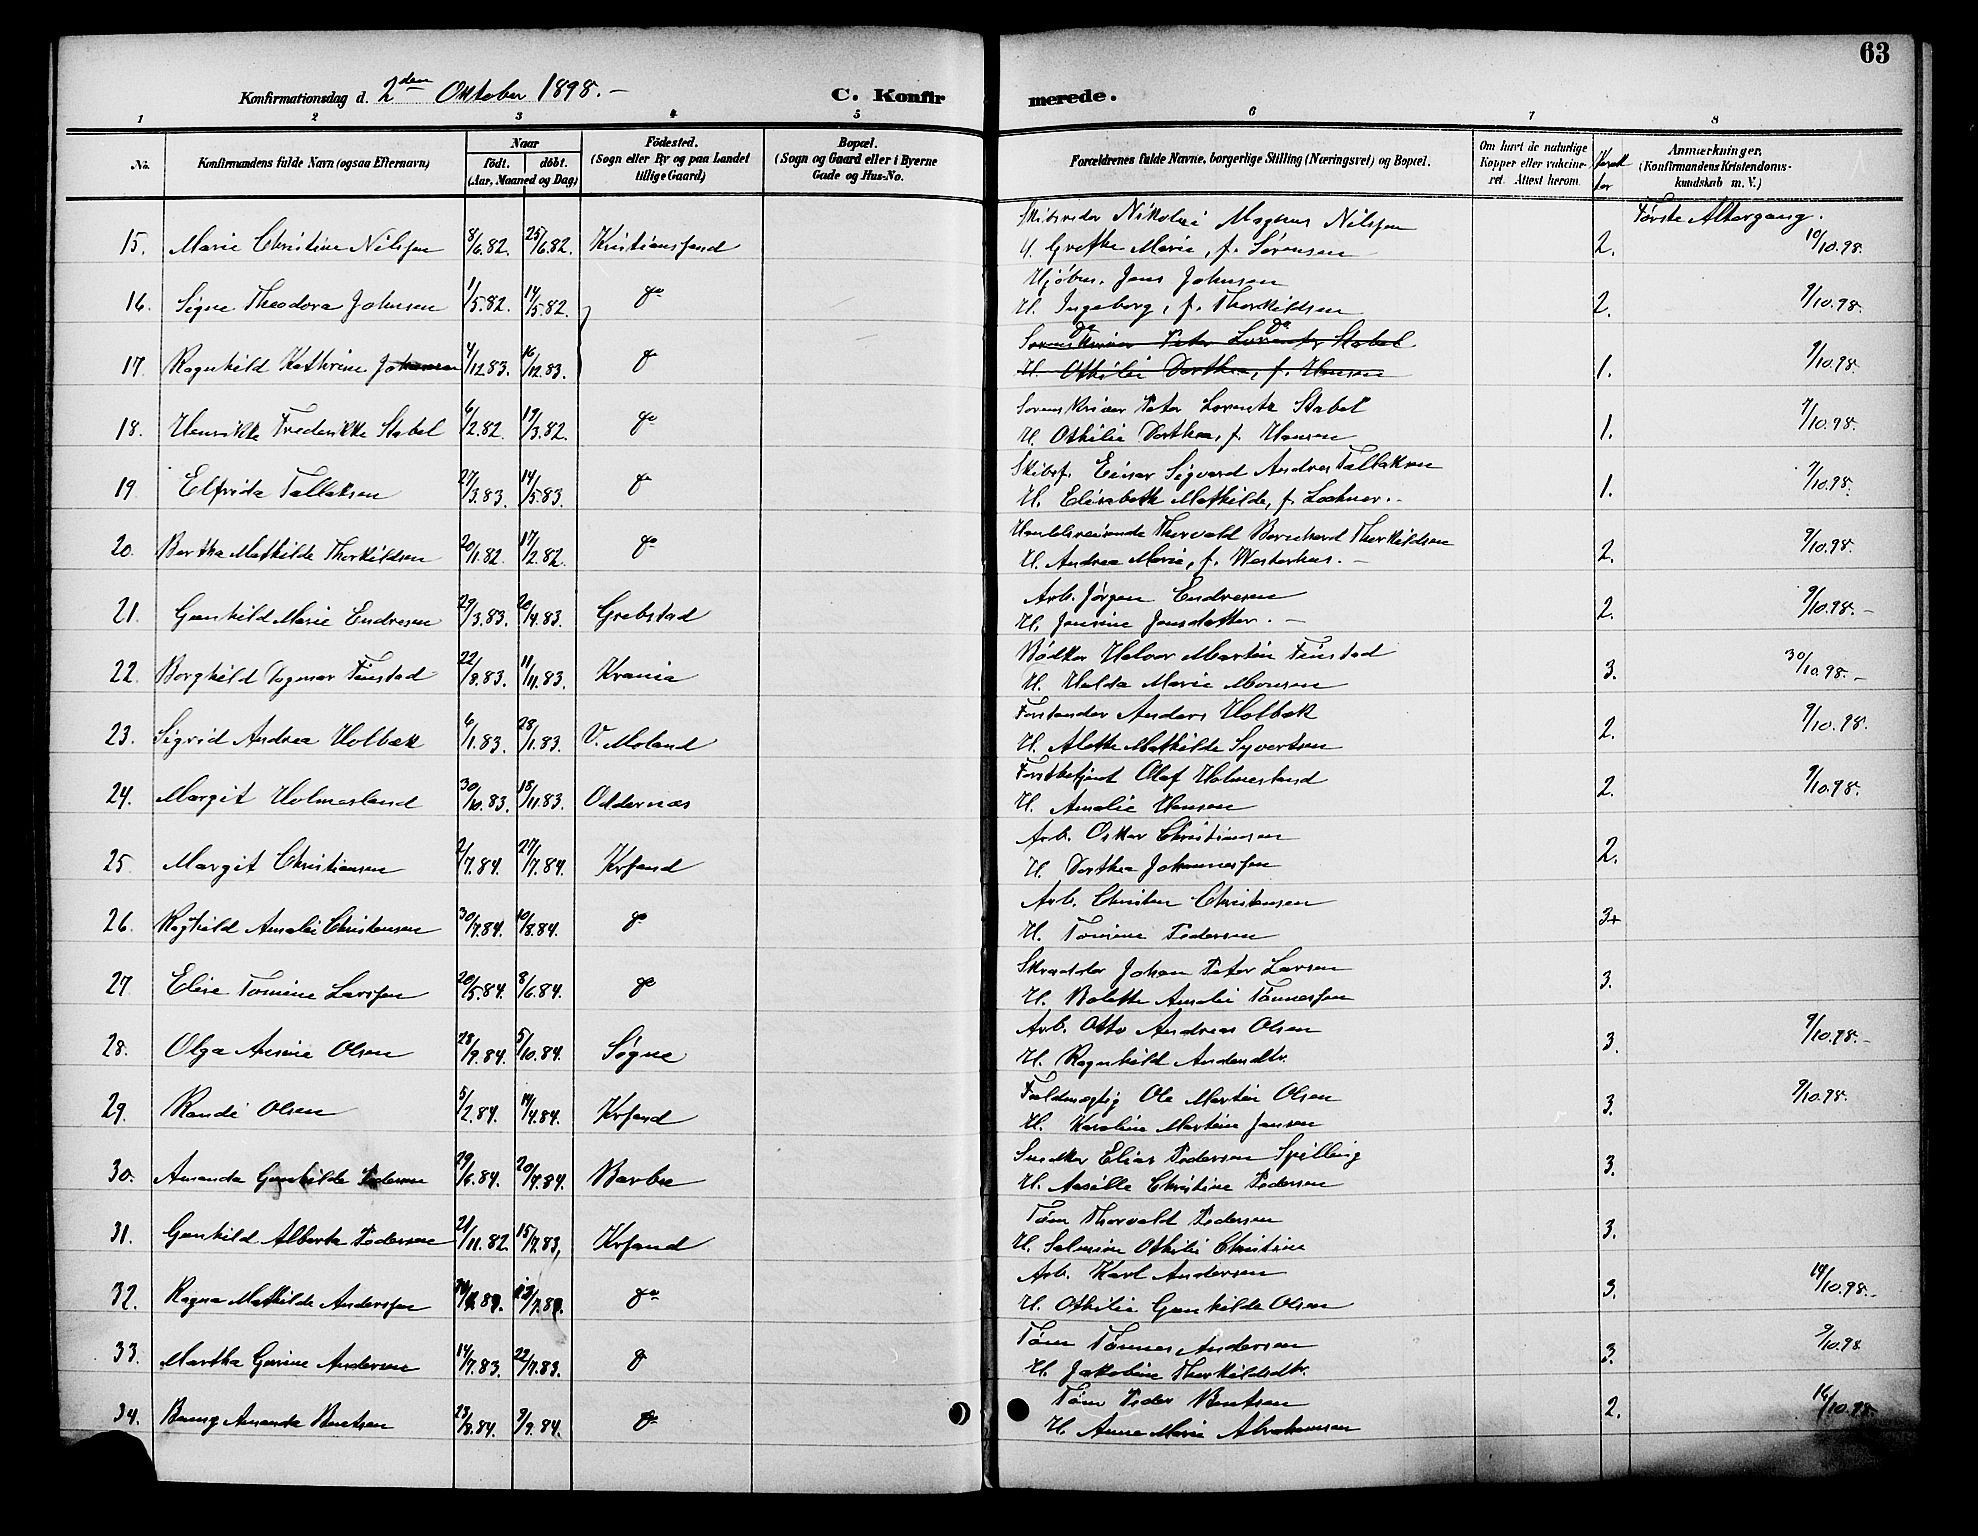 63
Konfirmationsdag d. 2den Oktober 1898.- C. Konfirmerede.
1 2 3 4 5 6 7 8
No. Konfirmandens fulde Navn (ogsaa Efternavn) Naar födt. döbt. (Aar, Maaned og Dag) Födested. (Sogn eller By og paa Landet tillige Gaard) Bopæl. (Sogn og Gaard eller i Byerne Gade og Hus-No. Forældrenes fulde Navne, borgerlige Stilling (Næringsvei) og Bopæl. Om havt de naturlige Kopper eller vakcineret. Attest herom. Karakter Anmærkninger. (Konfirmandens Kristendomskundskab m. V.)
Skibsreder Nikolai Magnus Nilssen Første Altergang.
15. Marie Christine Nilssen 8/6.82. 25/6.82. Kristianssand H. Grethe Marie, f. Sørensen 2. 10/10.98.
Hjøbm. Jens Johnsen
16. Signe Theodora Johnsen 1/5.82. 14/5.82. do H. Ingeborg, f. Thorkildsen 2. 9/10.98.
Sorenskriver Peter Lorentz Stabel
17. Ragnhild Kathrine Johansen 4/12.83. 16/12.83. do H. Othilie Dorthea, f. Hansen 1. 9/10.98.
Sorenskriver Peter Lorentz Stabel
18. Henrikke Frederikke Stabel 6/2.82. 19/3.82. do H. Othilie Dorthea, f. Hansen 1. 9/10.98.
Skibsf. Einar Sigvard Andres Tallaksen
19 Elfrida Tallaksen 27/3.83. 14/5.83. do H. Elisabeth Mathilde, f. Lochner.- 1. 9/10.98.
Handelsreisende Thorvald Bernhard Thorkildsen
20. Bertha Mathilde Thorkildsen 20/1.82. 17/2.82. do H. Andrea Marie, f. Westerhus.- 2. 9/10.98.
Arb. Jørgen Endresen
21. Gunhild Marie Endresen 29/3.83. 20/4.83. Grebstad H. Jensine Jensdatter.- 2. 9/10.98.-
Bødker Halvor Martin Finstad
22. Borghild Dagmar Finstad 22/8.83. 11/11.83. Krania H. Hulda Marie Monsen 3. 30/10.98.-
Forstander Anders Holbæk
23. Sigrid Andrea Holbæk 6/1.83. 28/1.83. V. Moland H. Alette Mathilde Syvertsen 2. 9/10.98.
Forstbetjent Olaf Holmesland
24. Margit Holmesland 30/10.83. 18/11.83. Oddernæs H. Amalie Hansen 2. 9/10.98.
Arb. Oskar Christiansen
25 Margit Christiansen 2/7.84. 27/7.84. Krsand H. Dorthea Johannessen 2.
Arb. Christen Christensen
26. Raghild Amalie Christensen 30/7.84. 10/8.84. do H. Tomine Pedersen 3+
Skrædder Johan Peter Larsen
27. Elise Tomine Larssen 20/5.84. 8/6.84. do H. Bolette Amalie Tønnessen 3.
Arb. Otto Andreas Olsen
28. Olga Ansine Olsen 28/9.84. 5/10.84. Søgne H. Ragnhild Andersdtr. 3. 9/10.98.-
Fuldmægtig Ole Martin Olsen
29. Randi Olsen 5/2.84. 14/4.84. Krsand H. Karoline Martine Jansen 3. 9/10.98.
Snedker Elias Pedersen Spilling
30. Amanda Gunhilde Pedersen 29/6.84. 20/7.84. Barbu H. Aasille Christine Pedersen 3.
Tøm Thorvald Pedersen
31. Gunhild Alberta Pedersen 21/11.82. 15/7.83, Krsand H. Salmine Othilie Christine 3.
Arb. Karl Andersen
32. Ragna Mathilde Anderssen do H. Othilie Gunhilde Olsen 3. 14/10.98.-
Tøm Tønnes Andersen
33. Martha Gurine Andersen 14/7.83. 22/7.83. do H. Jakobine Thorkildsdtr. 3. 9/10.98
Tøm Peder Bentsen
34. Amanda Bentsen 23/8.84. 9/9.84. do H. Anne Marie Abrahamsen 2. 16/10.98.